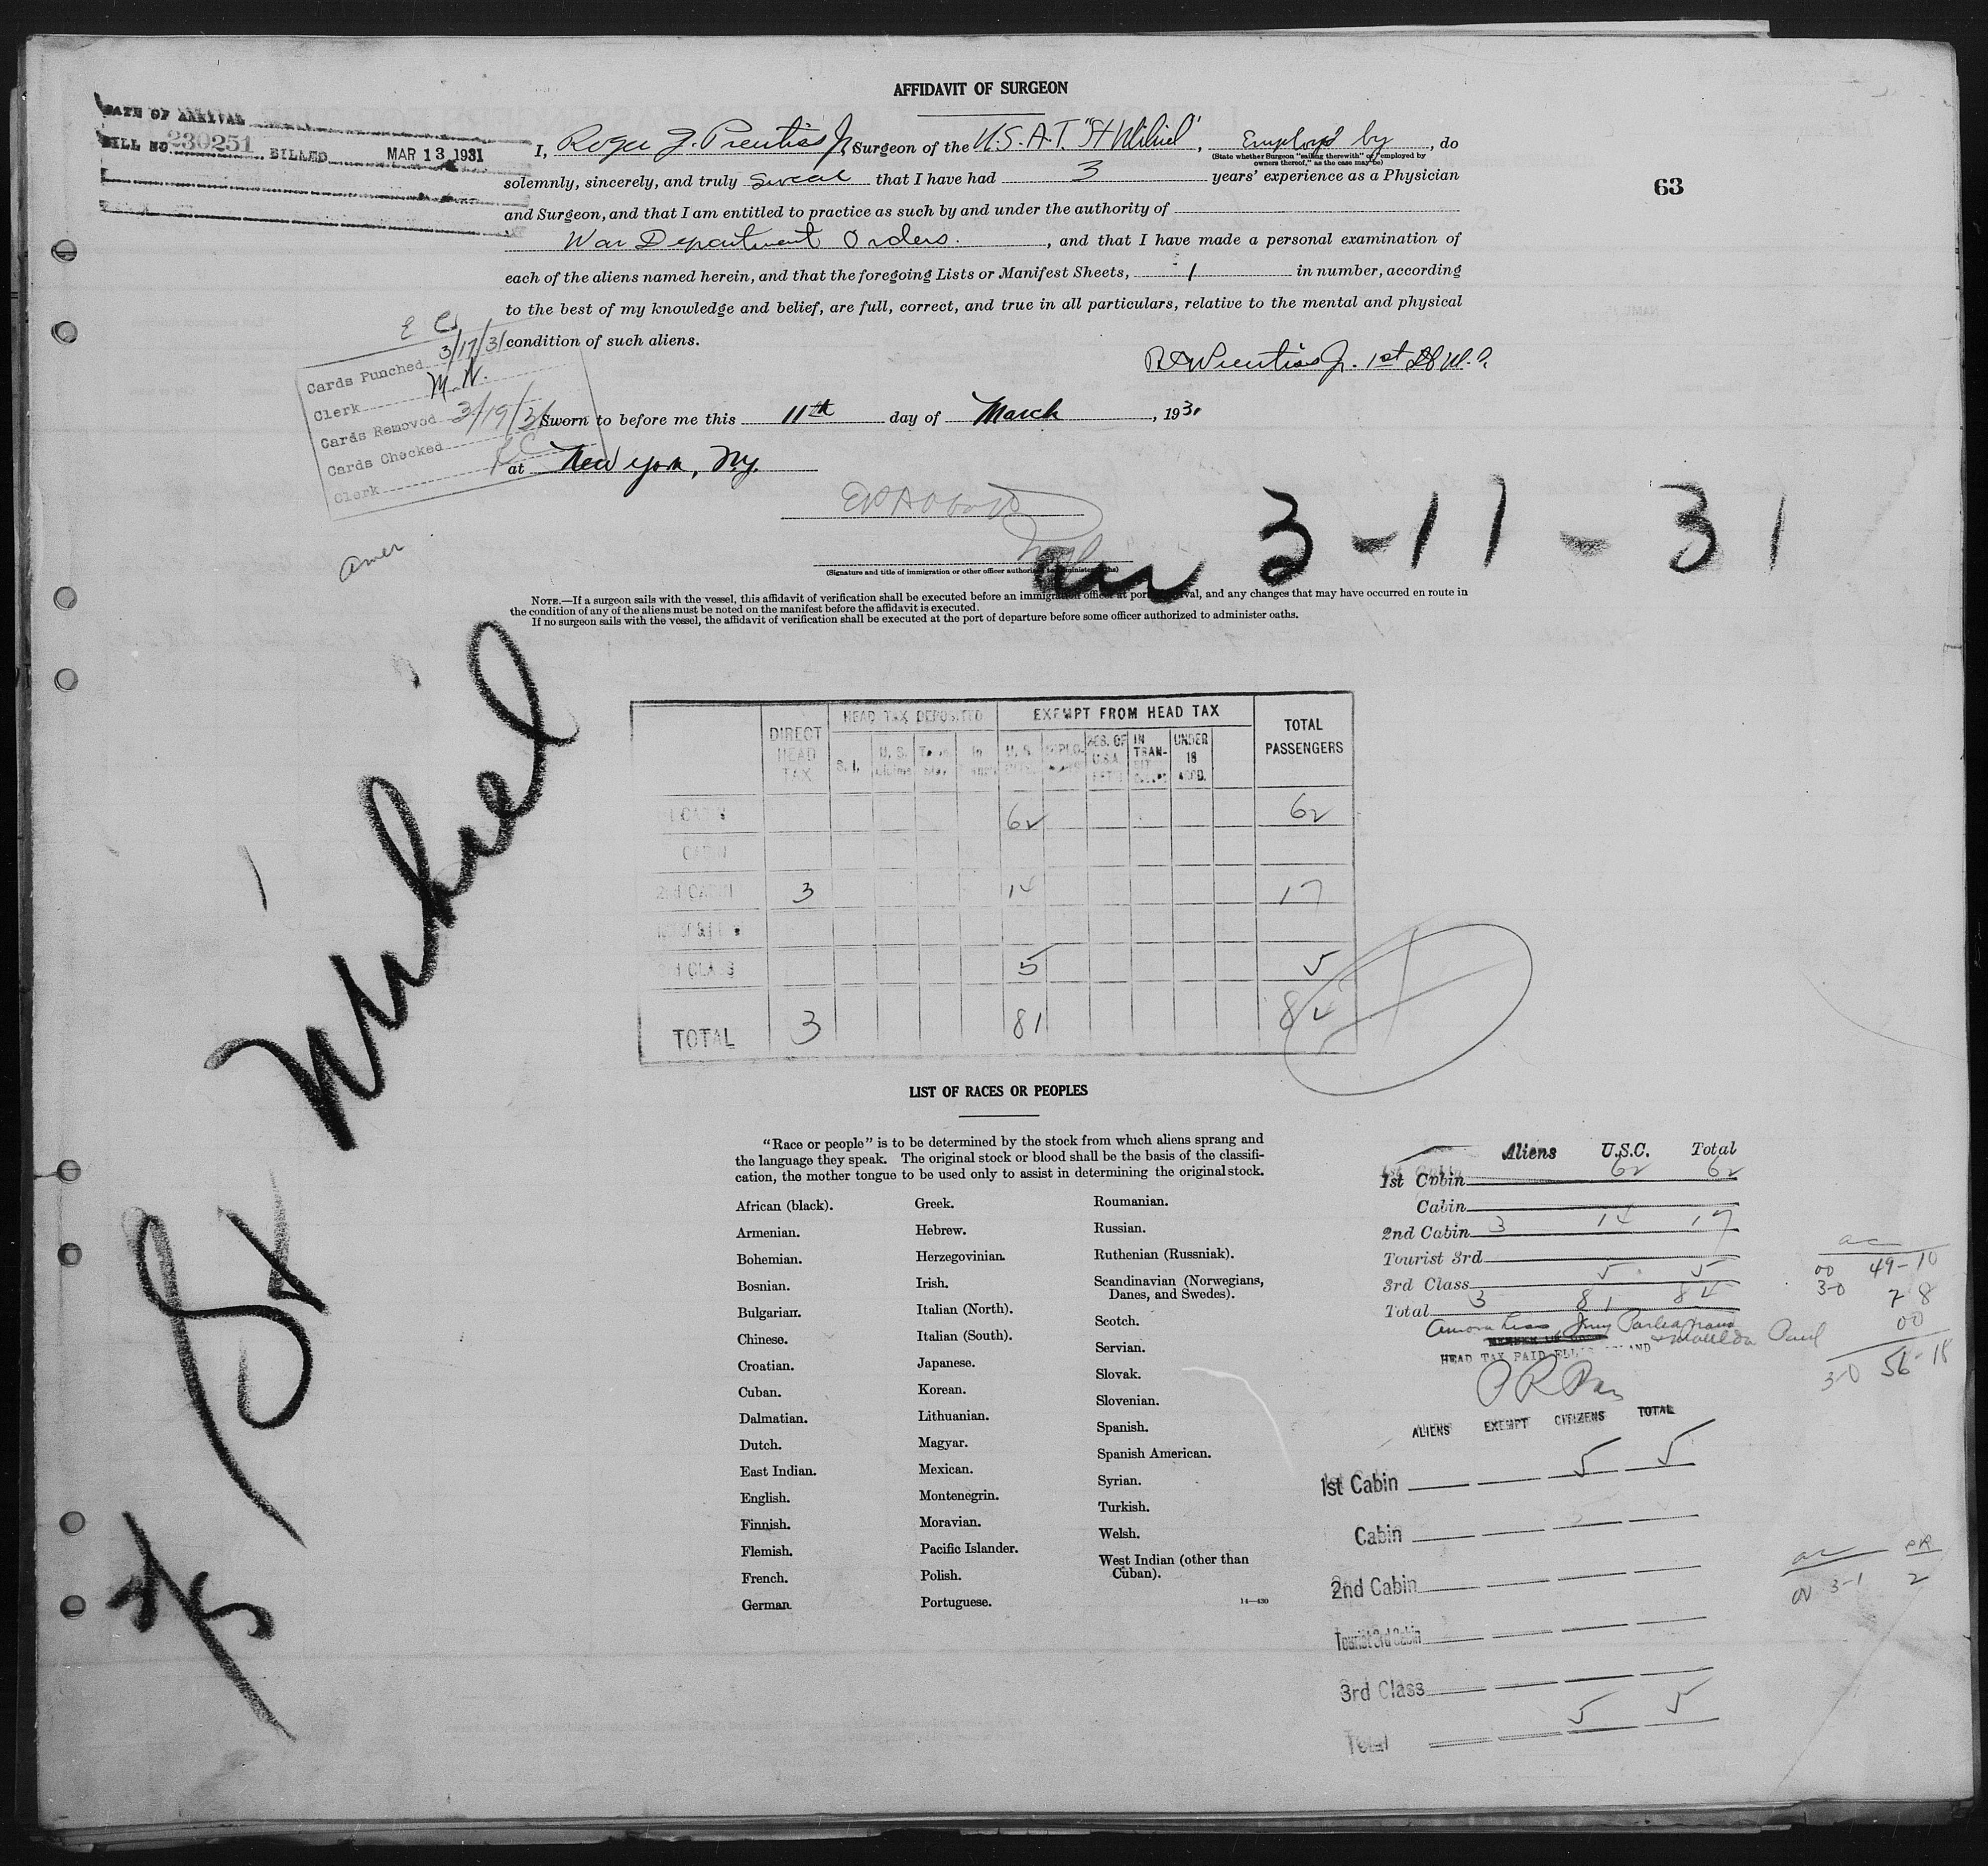 AFFIDAVIT OF SURGEON
DATE OF ARRIVAL
BILL NO. 230251 BILLED MAR 13 1931
63
I, Roger J. Prentiss Jr., Surgeon of the U.S.A.T. "St Mihiel", Employed by, do
(State whether Surgeon "sailing therewith" or "employed by owners thereof," as the case may be)
solemnly, sincerely, and truly swear that I have had 3 years' experience as a Physician
and Surgeon, and that I am entitled to practice as such by and under the authority of
War Department Orders., and that I have made a personal examination of
each of the aliens named herein, and that the foregoing Lists or Manifest Sheets, 1 in number, according
to the best of my knowledge and belief, are full, correct, and true in all particulars, relative to the mental and physical
condition of such aliens.
Prentiss Jr. 1st
Cards Punched 3/17/31
Clerk M.N.
Cards Removed 3/19/31
Cards Checked
Clerk
Sworn to before me this 11th day of March, 1931
at New York, N.Y.
3-11-31
(Signature and title of immigration or other officer authorized to administer oaths)
Amer
NOTE.—If a surgeon sails with the vessel, this affidavit of verification shall be executed before an immigration officer at port of arrival, and any changes that may have occurred en route in
the condition of any of the aliens must be noted on the manifest before the affidavit is executed.
If no surgeon sails with the vessel, the affidavit of verification shall be executed at the port of departure before some officer authorized to administer oaths.
St Mihiel
DIRECT HEAD TAX
HEAD TAX DEPOSITED
EXEMPT FROM HEAD TAX
TOTAL PASSENGERS
S. I.
U. S.
IN TRANSIT
UNDER 16 ACCD.
1 CABIN 62 62
CABIN
2nd CABIN 3 14 17
3d CLASS 5 5
TOTAL 3 81 84
LIST OF RACES OR PEOPLES
"Race or people" is to be determined by the stock from which aliens sprang and
the language they speak. The original stock or blood shall be the basis of the classifi-
cation, the mother tongue to be used only to assist in determining the original stock.
African (black).
Armenian.
Bohemian.
Bosnian.
Bulgarian.
Chinese.
Croatian.
Cuban.
Dalmatian.
Dutch.
East Indian.
English.
Finnish.
Flemish.
French.
German.
Greek.
Hebrew.
Herzegovinian.
Irish.
Italian (North).
Italian (South).
Japanese.
Korean.
Lithuanian.
Magyar.
Mexican.
Montenegrin.
Moravian.
Pacific Islander.
Polish.
Portuguese.
Roumanian.
Russian.
Ruthenian (Russniak).
Scandinavian (Norwegians,
Danes, and Swedes).
Scotch.
Servian.
Slovak.
Slovenian.
Spanish.
Spanish American.
Syrian.
Turkish.
Welsh.
West Indian (other than
Cuban).
14—430
Aliens U.S.C. Total
1st Cabin 62 62
Cabin
2nd Cabin 3 14 17
Tourist 3rd
3rd Class 5 5
Total 3 81 84
HEAD TAX PAID ELLIS ISLAND
00 49-10
3-0 7 8
00
3-0 56-18
ALIENS EXEMPT CITIZENS TOTAL
1st Cabin 5 5
Cabin
2nd Cabin
Tourist 3rd Cabin
3rd Class
Total 5 5
3-1 2